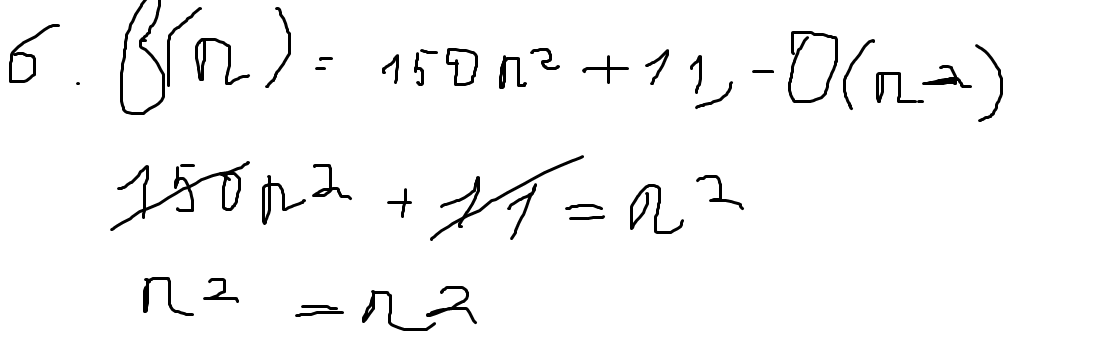 б. f(n) = 150n² + 11, - O(n²)
150n² + 11 = n²
n² = n²